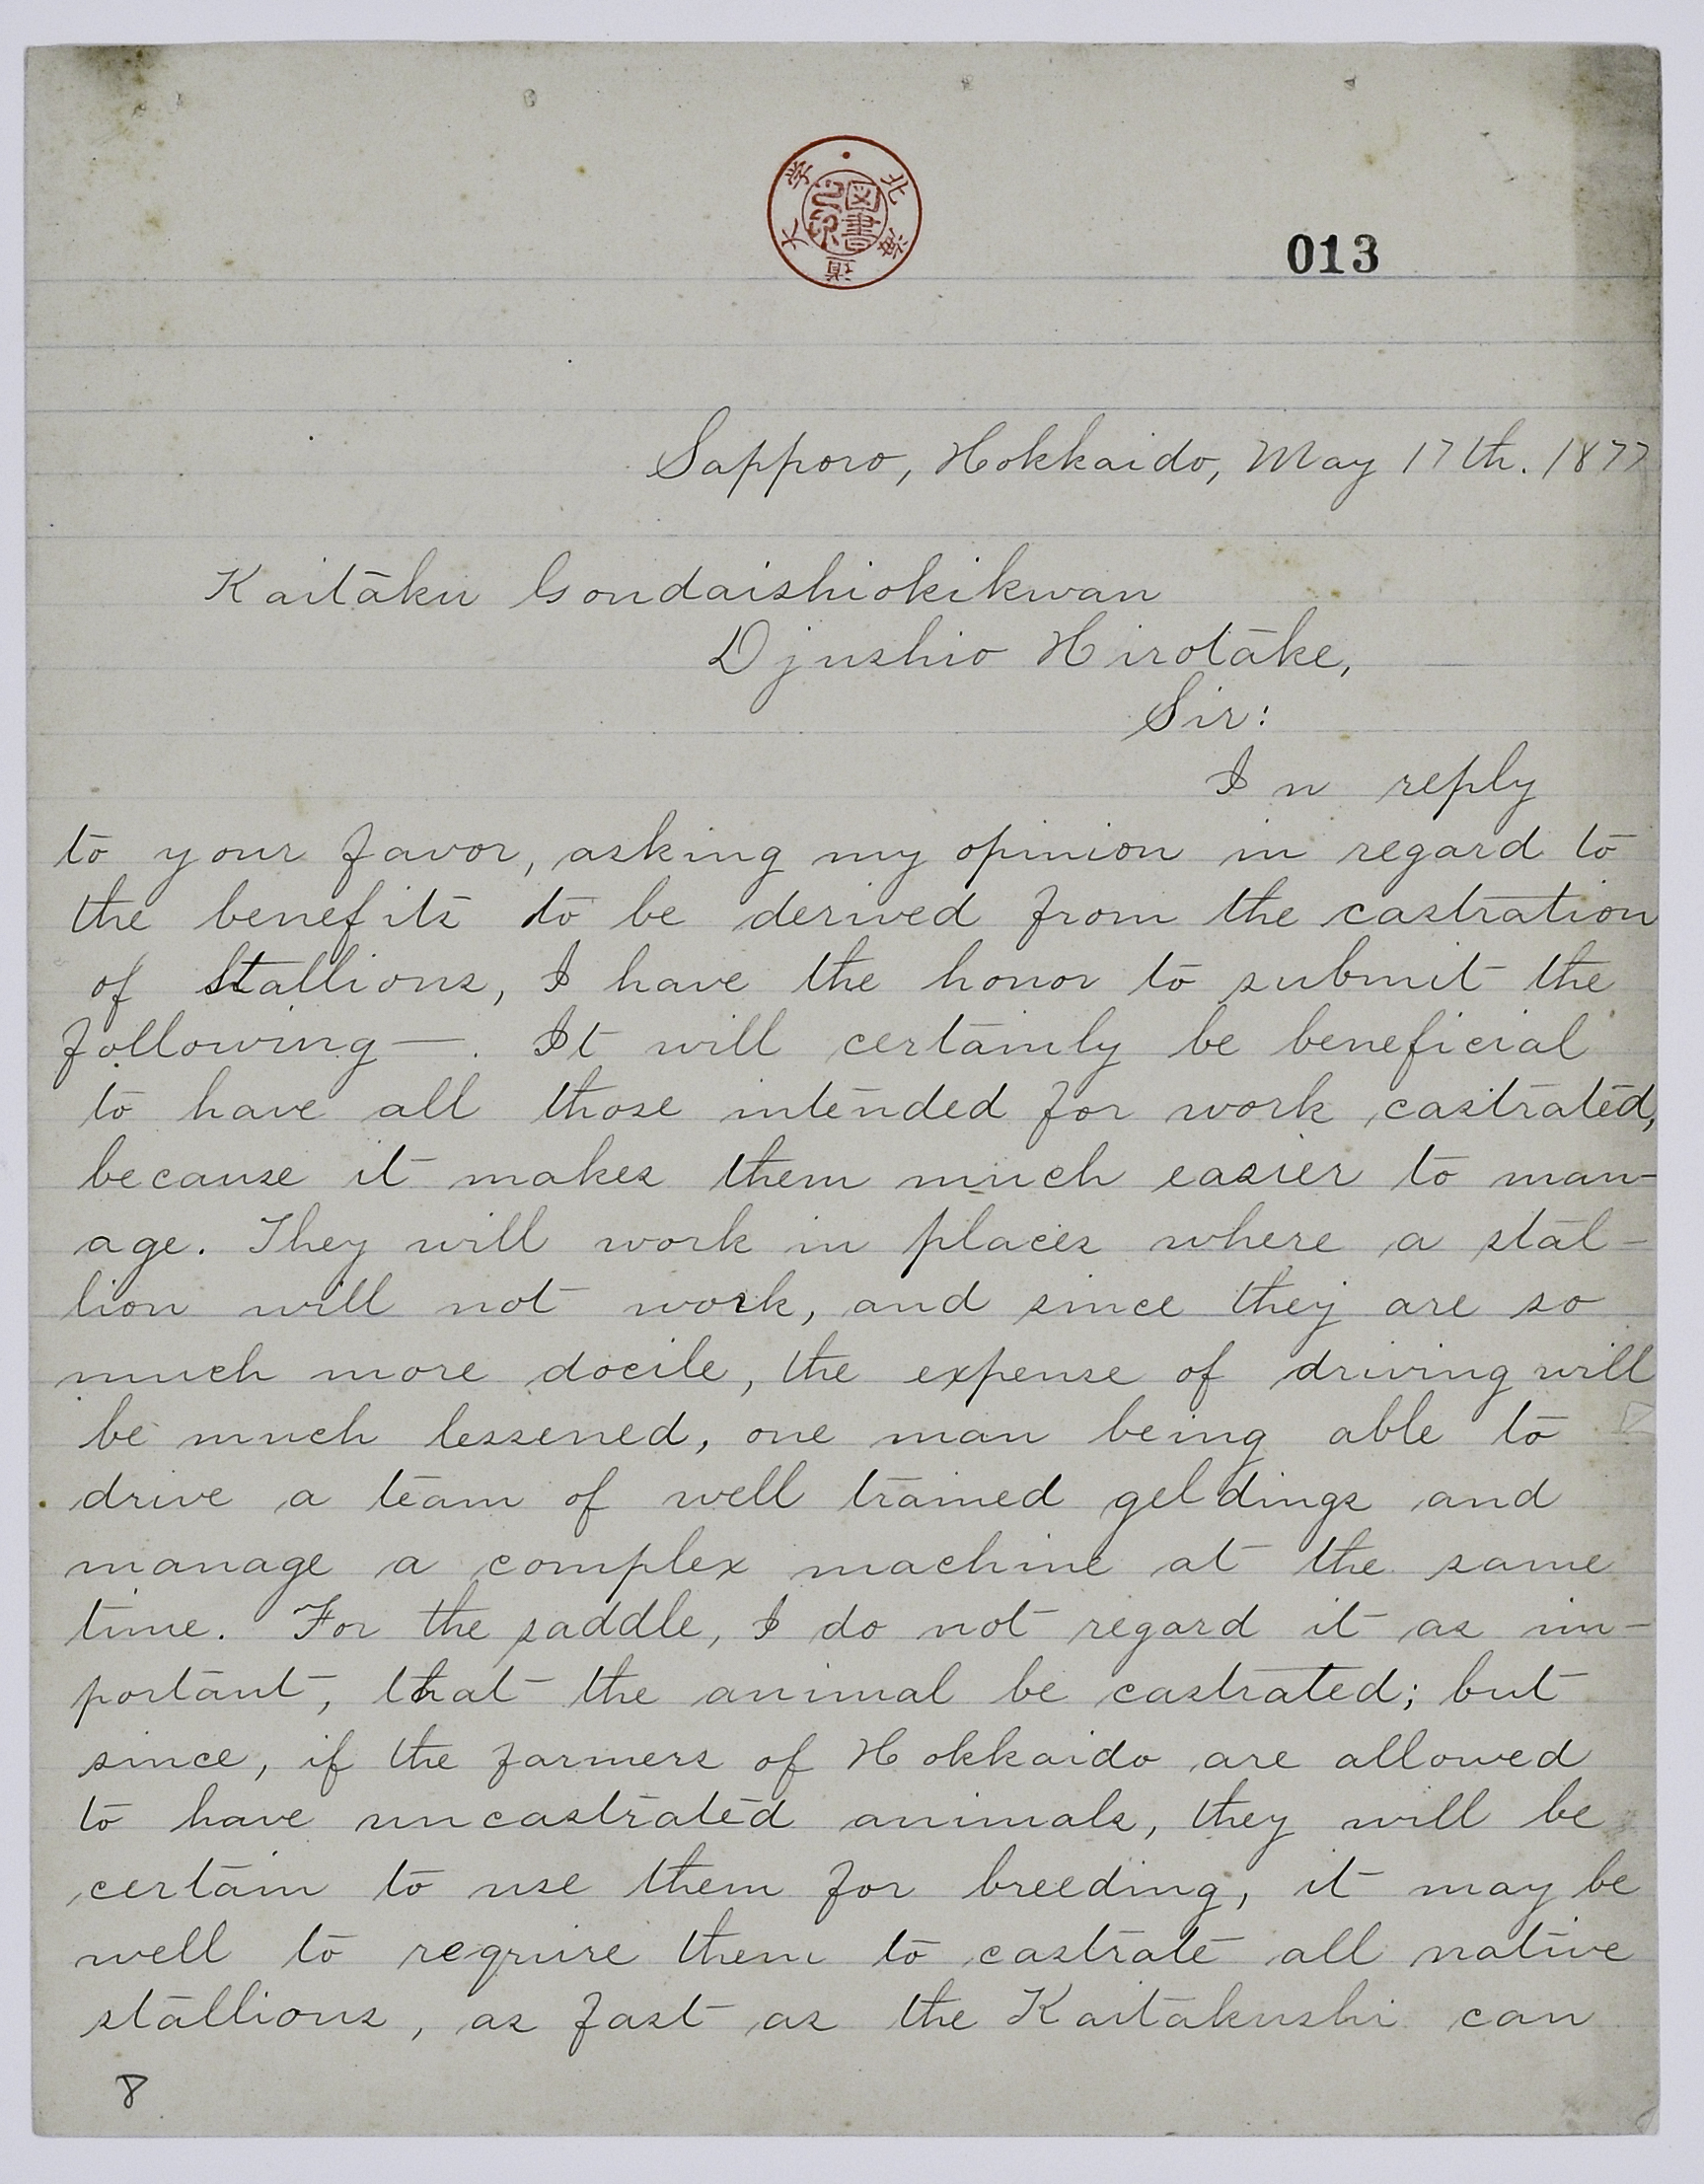 北海道大学
図書之印
013
Sapporo, Hokkaido, May 17th. 1877
Kaitaku Gondaishiokikwan
Djushio Hirotake,
Sir:
In reply
to your favor, asking my opinion in regard to
the benefits to be derived from the castration
of Stallions, I have the honor to submit the
following—. It will certainly be beneficial
to have all those intended for work castrated,
because it makes them much easier to man-
age. They will work in places where a stal-
lion will not work, and since they are so
much more docile, the expense of driving will
be much lessened, one man being able to
drive a team of well trained geldings and
manage a complex machine at the same
time. For the saddle, I do not regard it as im-
portant, that the animal be castrated; but
since, if the farmers of Hokkaido are allowed
to have uncastrated animals, they will be
certain to use them for breeding, it may be
well to require them to castrate all native
stallions, as fast as the Kaitakushi can
8